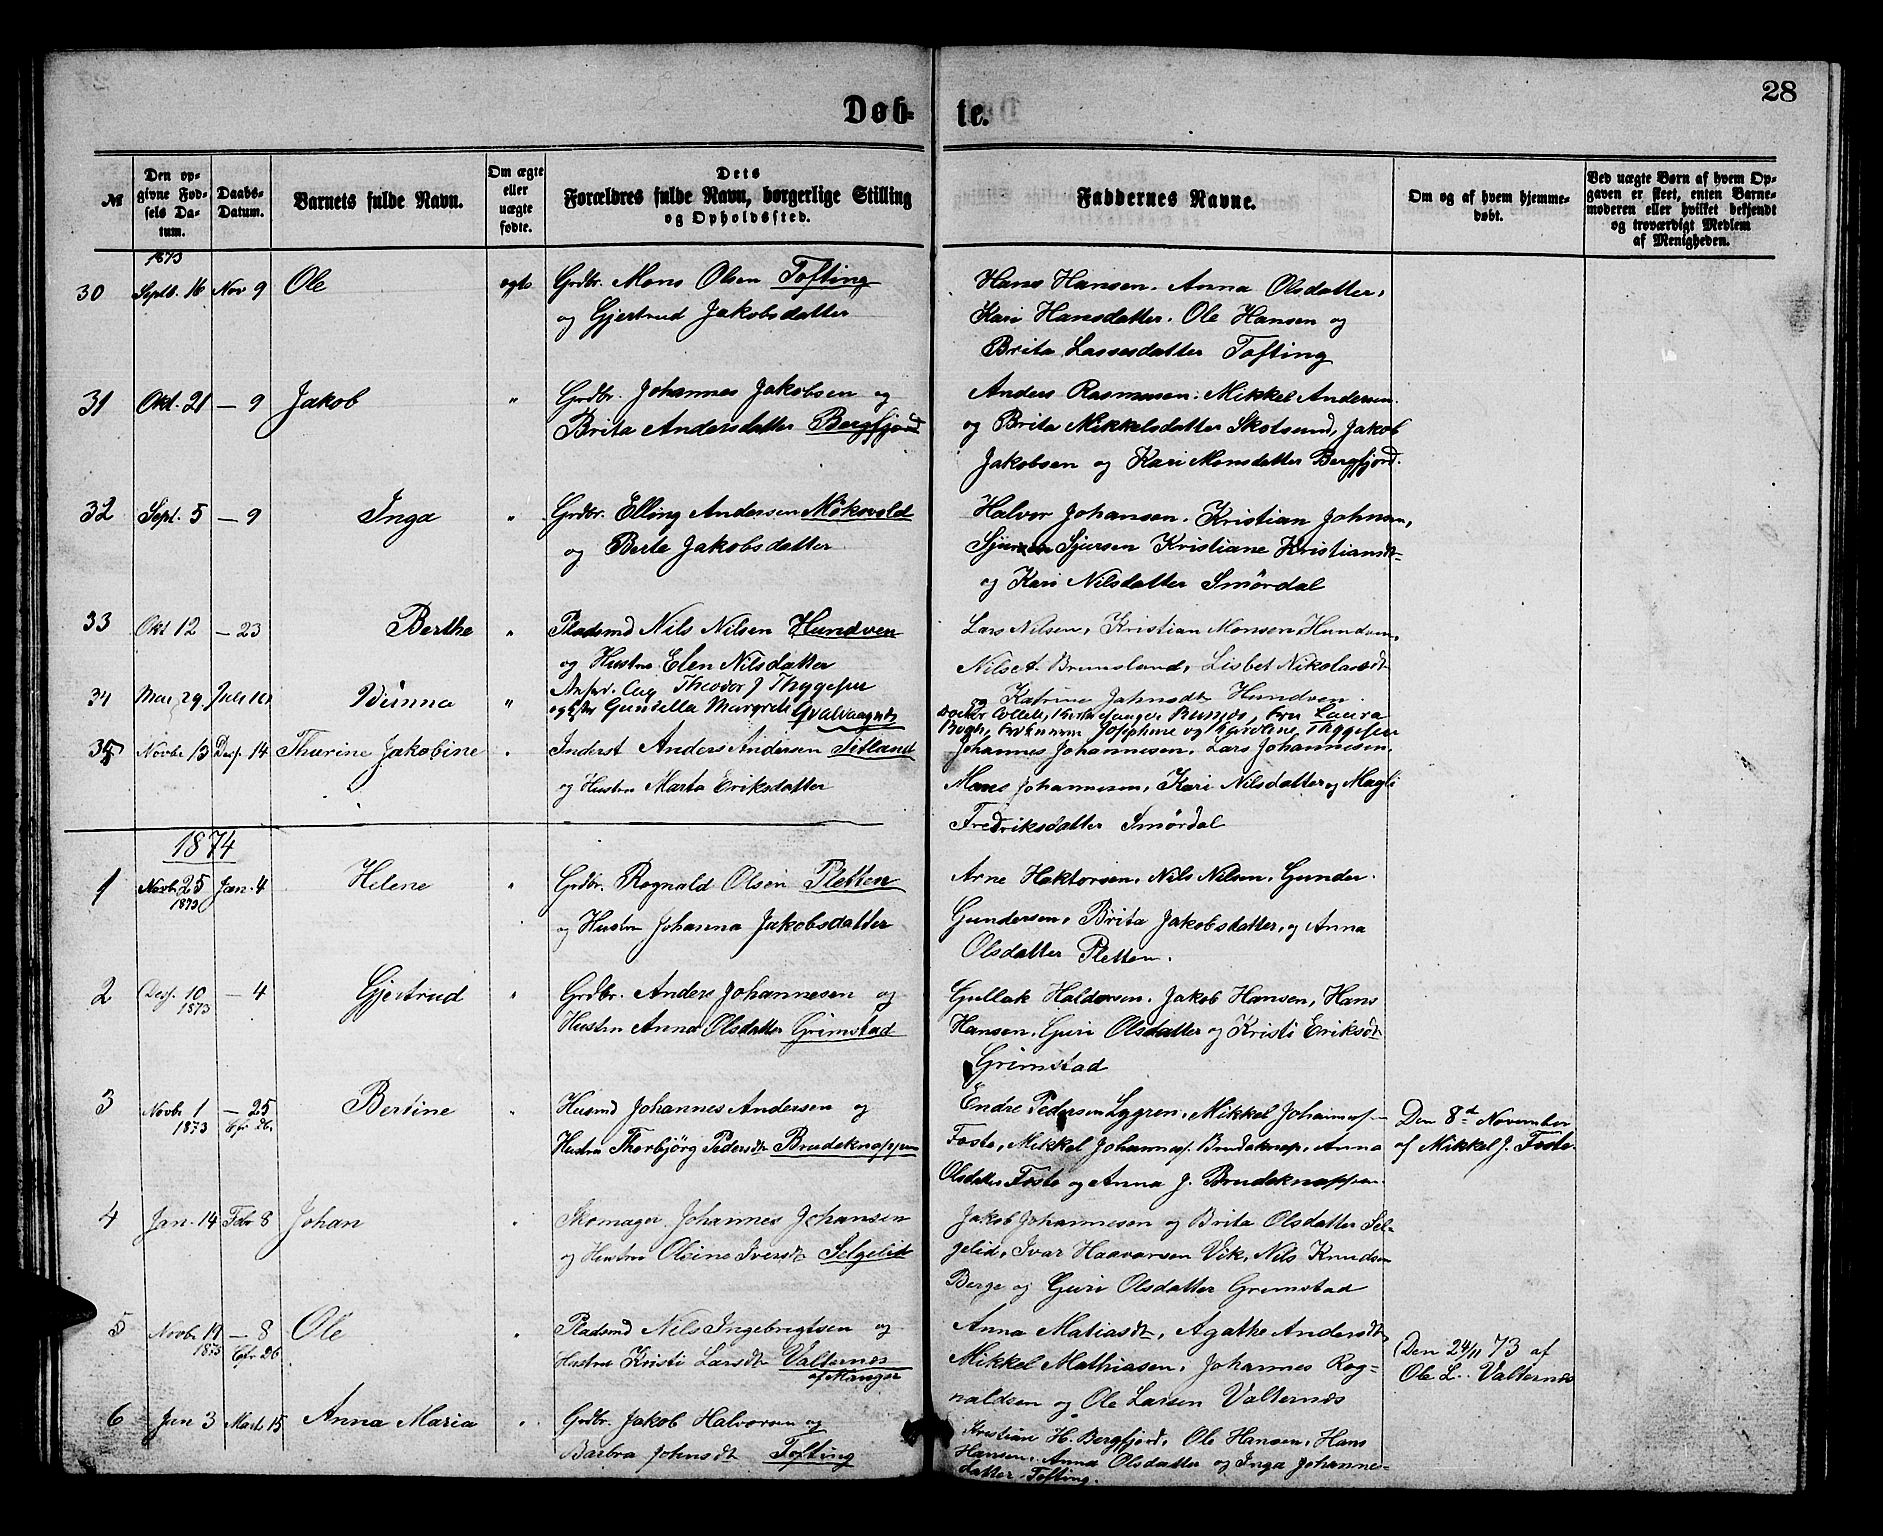 28
Døb= te.
№
Den opgivne Fødsels Datum.
Daabs-Datum.
Barnets fulde Navn.
Om ægte eller uægte fødte.
Dets Forældres fulde Navn, borgerlige Stilling og Opholdssted.
Faddernes Navne.
Om og af hvem hjemmedøbt.
Ved uægte Børn af hvem Opgaven er skeet, enten Barnemoderen eller hvilket bekjendt og troværdigt Medlem af Menigheden.
1873
30 Septb. 16 Nov 9 Ole ægte Grdbr. Mons Olsen Tofting
og Gjertrud Jakobsdatter
Hans Hansen. Anna Olsdatter,
Kari Hansdatter. Ole Hansen og
Brita Lassesdatter Tofting
31 Okt. 21 — 9 Jakob " Grdbr. Johannes Jakobsen og
Brita Andersdatter Bergfjord
Anders Rasmusen. Mikkel Andersen
og Brita Mikkelsdatter Skotsund, Jakob
Jakobsen og Kari Monsdatter Bergfjord.
32 Sept. 5 — 9 Inga " Grdbr. Elling Andersen Mökevold
og Berte Jakobsdatter
Halvor Johansen. Kristian Johnsen,
Sjursen Kristiane Kristiansdt
og Kari Nilsdatter Smördal
33 Okt 12 — 23 Berthe " Pladsmd Nils Nilsen Hundven
og Hustru Elen Nilsdatter
Lars Nilsen, Kristian Monsen Hundven,
Nils A. Brunsland, Lisbet Nikolaisdt
og Katrine Johnsdt Hundven.
34 Mai 29 Juli Nunna " Theodor J Thygesen
Gunella Margrete
Laura
Josephine og Karoline Thygesen
35 Novbr 13 Desf. 14 Thurine Jakobine " Inderst Anders Andersen Sætland
og Hustru Marta Eriksdatter
Johannes Johannesen, Lars Johannesen,
Mons Johannesen, Kari Nilsdatter og Magli
Fredriksdatter Smördal
1874
1 Novbr. 25 1873 Jan. 4 Helene " Grdbr. Rognald Olsen Pletten
og Hustru Johanna Jakobsdatter
Arne Hektorsen, Nils Nilsen, Gunder
Gundersen, Brita Jakobsdatter, og Anna
Olsdatter Pletten.
2 Desf. 10 1873 — 4 Gjertrud " Grdbr. Anders Johannesen og
Hustru Anna Olsdatter Grimstad
Gullak Haldorsen. Jakob Hansen, Hans
Hansen, Guri Olsdatter og Kristi Eriksdt
Grimstad
3 Novbr 1 1873 — 25 Cfr. 26. Bertine " Husmd Johannes Andersen og
Hustru Thorbjörg Pedersdt Brudeknappen
Endre Pedersen Lygren, Mikkel Johannesf.
Foste, Mikkel Johannesf. Brudeknap, Anna
Olsdatter Foste og Anna J. Brudeknappen.
Den 8de November
af Mikkel J. Foste.
4 Jan. 14 Febr 8 Johan " Skomager Johannes Johansen
og Hustru Oleine Iversdt Selgelid
Jakob Johannesen og Brita Olsdatter Sel-
gelid, Ivar Haavarsen Vik, Nils Knudsen
Berge og Guri Olsdatter Grimstad
5 Novbr 19 1873 — 8 Cfr 26 Ole " Pladsmd Nils Ingebrigtsen og
Hustru Kristi Larsdt Valternes
af Manger
Anna Matiasdt, Agathe Andersdt
Mikkel Mathiasen, Johannes Rog-
naldsen og Ole Larsen Valternæs
Den 24/11 73 af
Ole L. Valternæs
6 Jan 3 Marts 15 Anna Maria " Grdbr. Jakob Halvorsen og
Barbra Johnsdt Tofting
Kristian H. Bergfjord, Ole Hansen, Hans
Hansen, Anna Olsdatter og Inga Johannes-
datter Tofting.